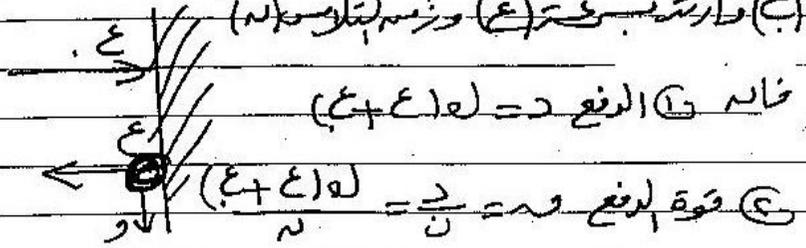 وارتد بسرعة (ع) وزمن التلامس (ن)
ع.
فإنه ① الدفع د = ك(ع + ع.)
ع
② قوة الدفع ق = د/ن = ك(ع + ع.)/ن
و